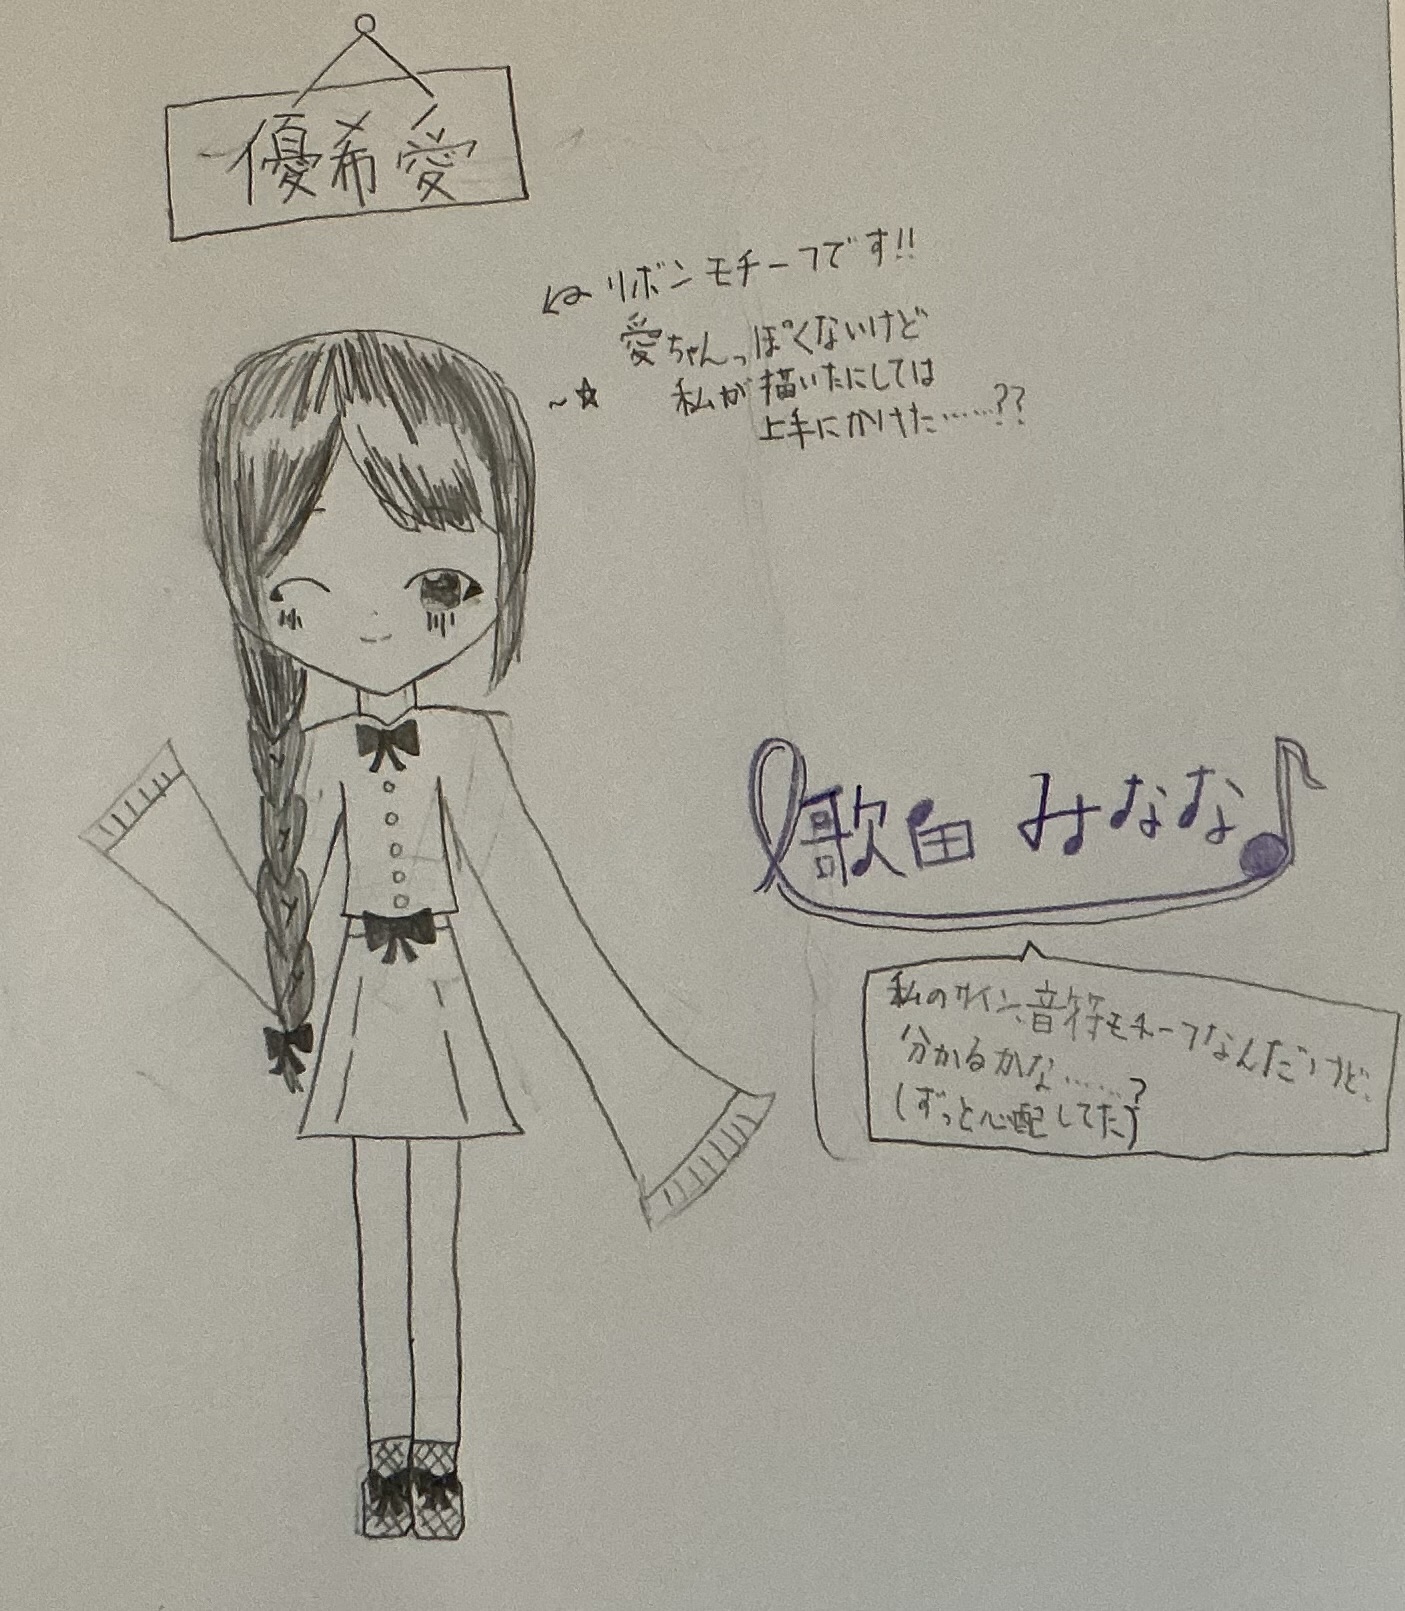 優希愛
リボンモチーフです!!
愛ちゃんっぽくないけど
~☆ 私が描いたにしては
上手にかけた……??
歌田 みなな
私のサイン、音符モチーフなんだけど、
分かるかな……?
(ずっと心配してた)